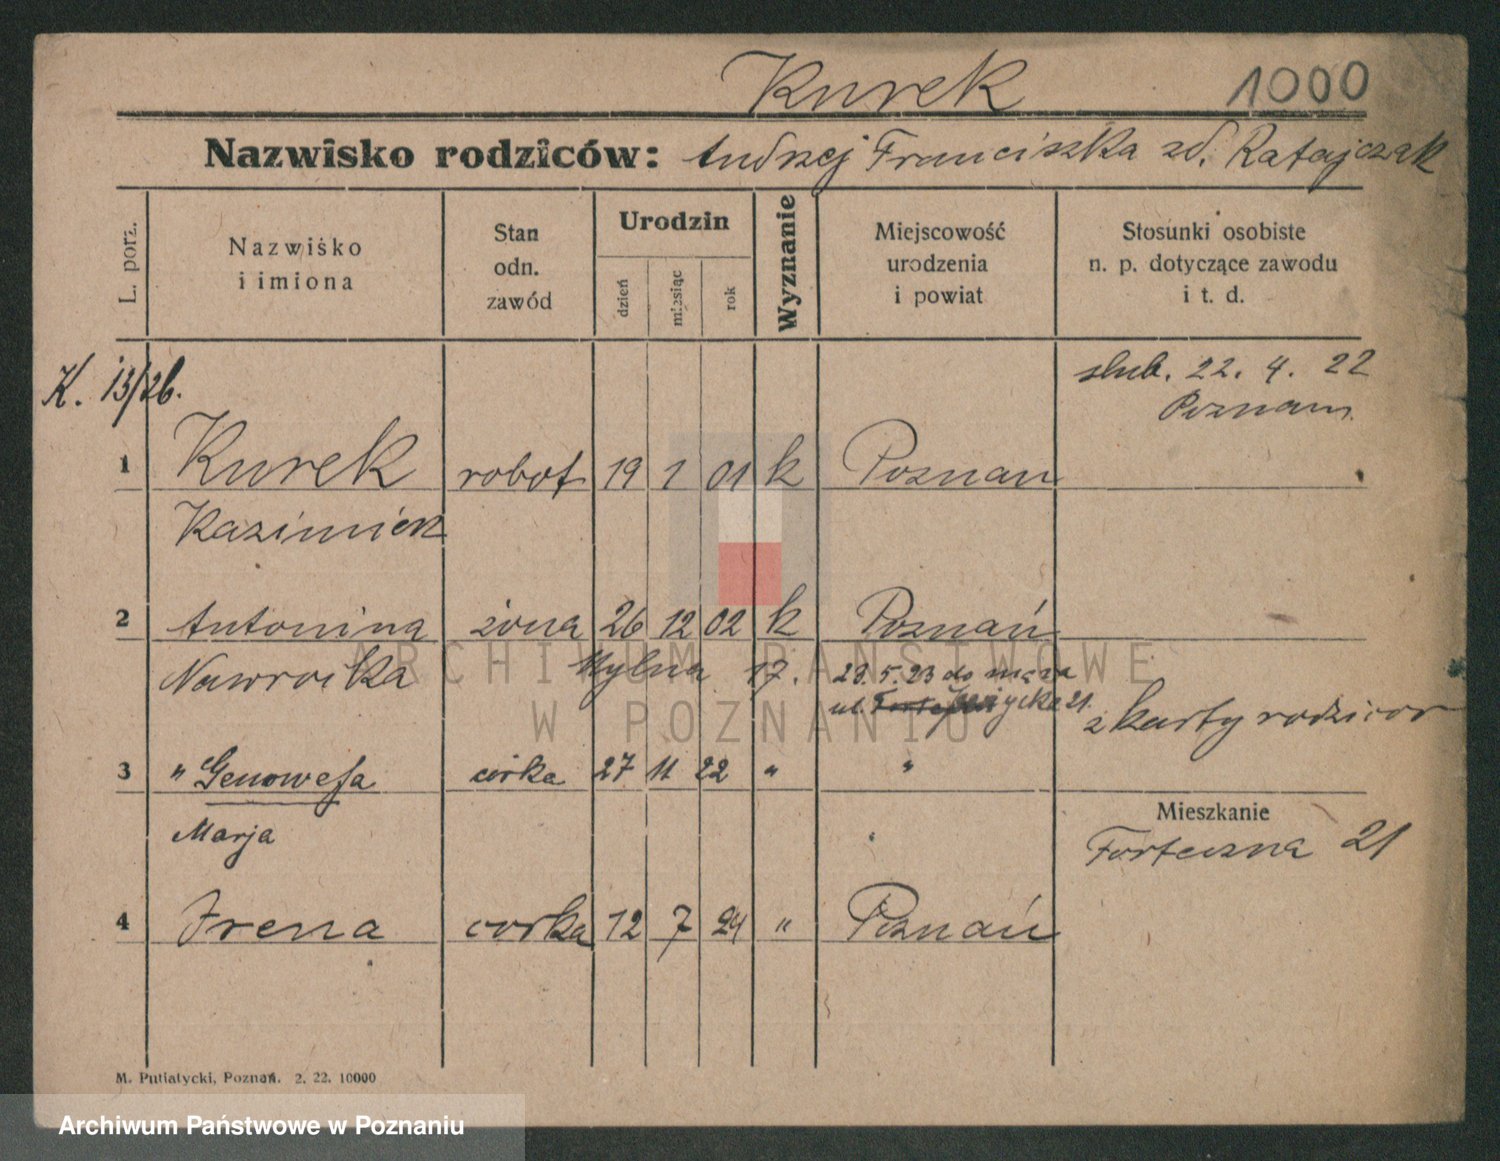 Kurek 1000
Nazwisko rodziców: Andrzej Franciszka zd. Ratajczak
L. porz.
Nazwisko i imiona
Stan odn. zawód
Urodzin
dzień miesiąc rok
Wyznanie
Miejscowość urodzenia i powiat
Stosunki osobiste n. p. dotyczące zawodu i t. d.
K. 13/26.
slub. 22. 4. 22
Poznan
1 Kurek robot 19 1 01 k Poznan
Kazimierz
2 Antonina żona 26 12 02 k Poznań
Nawrotka Mylna 17. 23.5.23 do męża
ul. 21.
z karty rodziców
3 " Genowefa córka 27 11 22 " "
Mieszkanie
Marja
Forteczna 21
4 Irena corka 12 7 24 " Poznań
M. Putiatycki, Poznań. 2. 22. 10000
ARCHIWUM PAŃSTWOWE
W POZNANIU
Archiwum Państwowe w Poznaniu